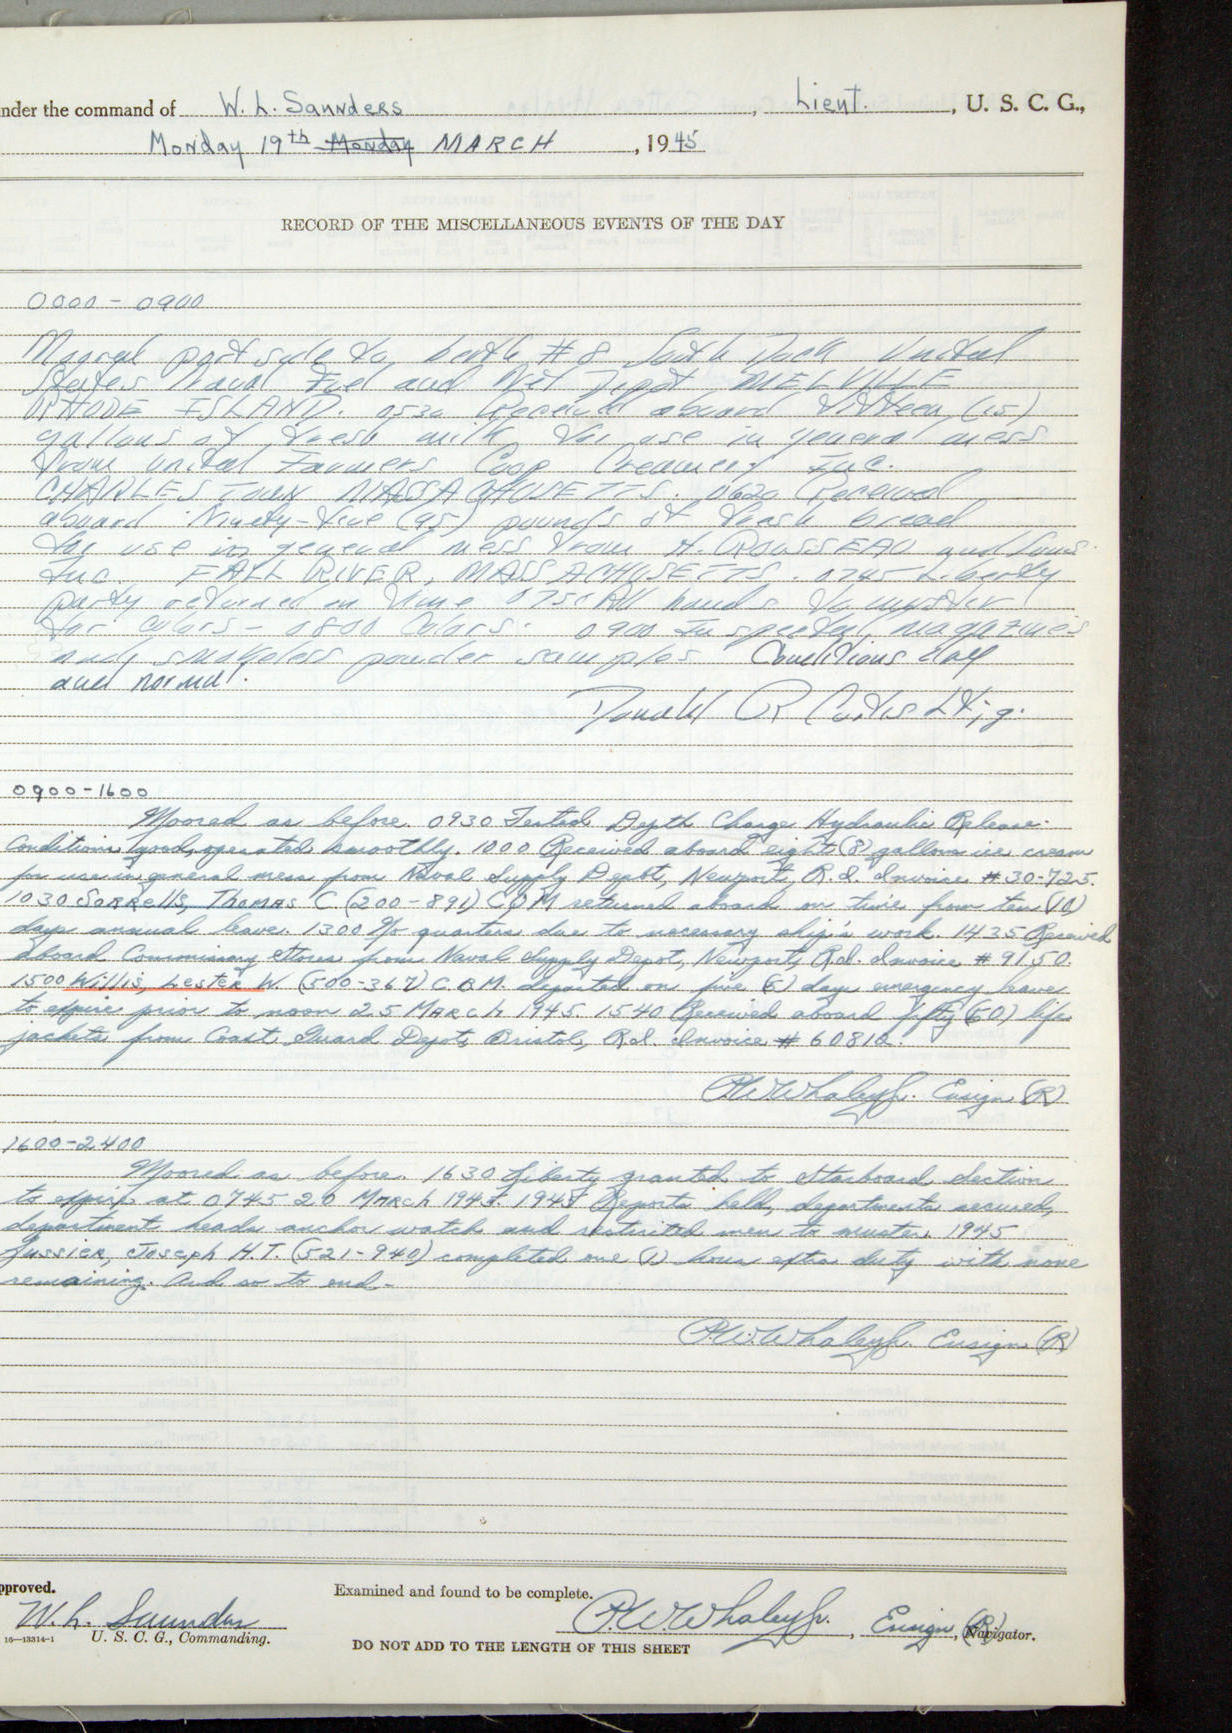 nder the command of W. L. Saunders, Lient., U. S. C. G.,
Monday 19th Monday MARCH, 1945
RECORD OF THE MISCELLANEOUS EVENTS OF THE DAY
0000 - 0900
Moored port side to, berth # 8 South Dock United
States Naval Fuel and Net Depot MELVILLE
RHODE ISLAND. 0530 Received aboard fifteen (15)
gallons of fresh milk for use in general mess
from United Farmers Coop Creamery Inc.
CHARLESTOWN MASSACHUSETTS. 0620 Received
aboard Ninety-five (95) pounds of fresh bread
for use in general mess from H. ROUSSEAU and Sons
Inc. FALL RIVER, MASSACHUSETTS. 0745 Liberty
party returned on time 0750 All hands to muster
for colors - 0800 Colors. 0900 Inspected, magazines
and smokeless powder samples Conditions dry
and normal.
Donald R Curtis Lt; jg.
0900-1600
Moored as before. 0930 Tested Depth Charge Hydraulic Release.
Conditions good, operated smoothly. 1000 Received aboard eight (8) gallons ice cream
for use in general mess from Naval Supply Depot, Newport, R.I. Invoice # 30-725.
1030 Sorrells, Thomas C. (200-891) CQM returned aboard on time from ten (10)
days annual leave. 1300 No quarters due to necessary ship's work. 1435 Received
aboard Commissary Stores from Naval Supply Depot, Newport, R.I. Invoice # 9150.
1500 Willis, Lester W. (500-367) C.B.M. departed on five (5) days emergency leave
to expire prior to noon 25 March 1945. 1540 Received aboard fifty (50) life
jackets from Coast Guard Depot, Bristol, R.I. Invoice # 60812.
P.W. Whaley Jr. Ensign (R)
1600-2400
Moored as before. 1630 Liberty granted to Starboard Section
to expire at 0745 20 March 1945. 1945 Reports held, departments secured,
department heads anchor watch and restricted men to muster. 1945
Lussier, Joseph H.T. (521-940) completed one (1) hour extra duty with none
remaining. And so to end-
P.W. Whaley Jr. Ensign (R)
pproved.
Examined and found to be complete.
W. L. Saunders
P.W. Whaley Jr., Ensign, (R) Navigator.
16-13314-1 U. S. C. G., Commanding.
DO NOT ADD TO THE LENGTH OF THIS SHEET